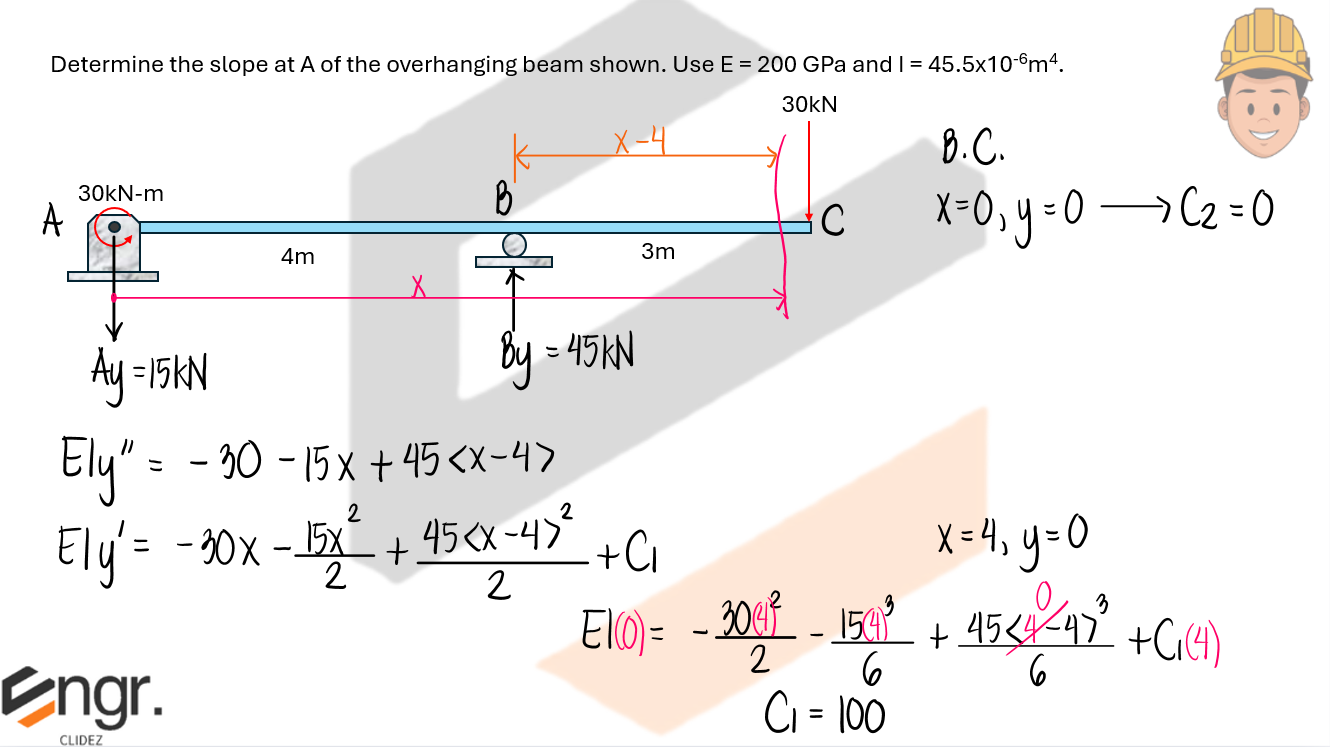 Determine the slope at A of the overhanging beam shown. Use E = 200 GPa and I = 45.5x10⁻⁶m⁴.
30kN
x-4
B.C.
30kN-m
A
B
C
x=0, y=0 → C₂ = 0
4m
3m
x
Ay =15kN
By = 45kN
EIy'' = -30 -15x + 45<x-4>
EIy' = -30x - 15x²/2 + 45<x-4>²/2 + C₁
x=4, y=0
EI(0) = - 30(4)²/2 - 15(4)³/6 + 45<4-4>³/6 + C₁(4)
0
C₁ = 100
Engr.
CLIDEZ